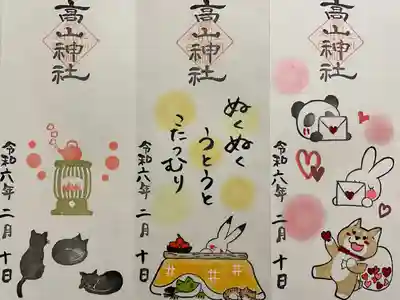 高山神社
令和六年 二月 十日
高山神社
ぬくぬく
うとうと
こたつむり
令和六年 二月 十日
高山神社
令和六年 二月 十日